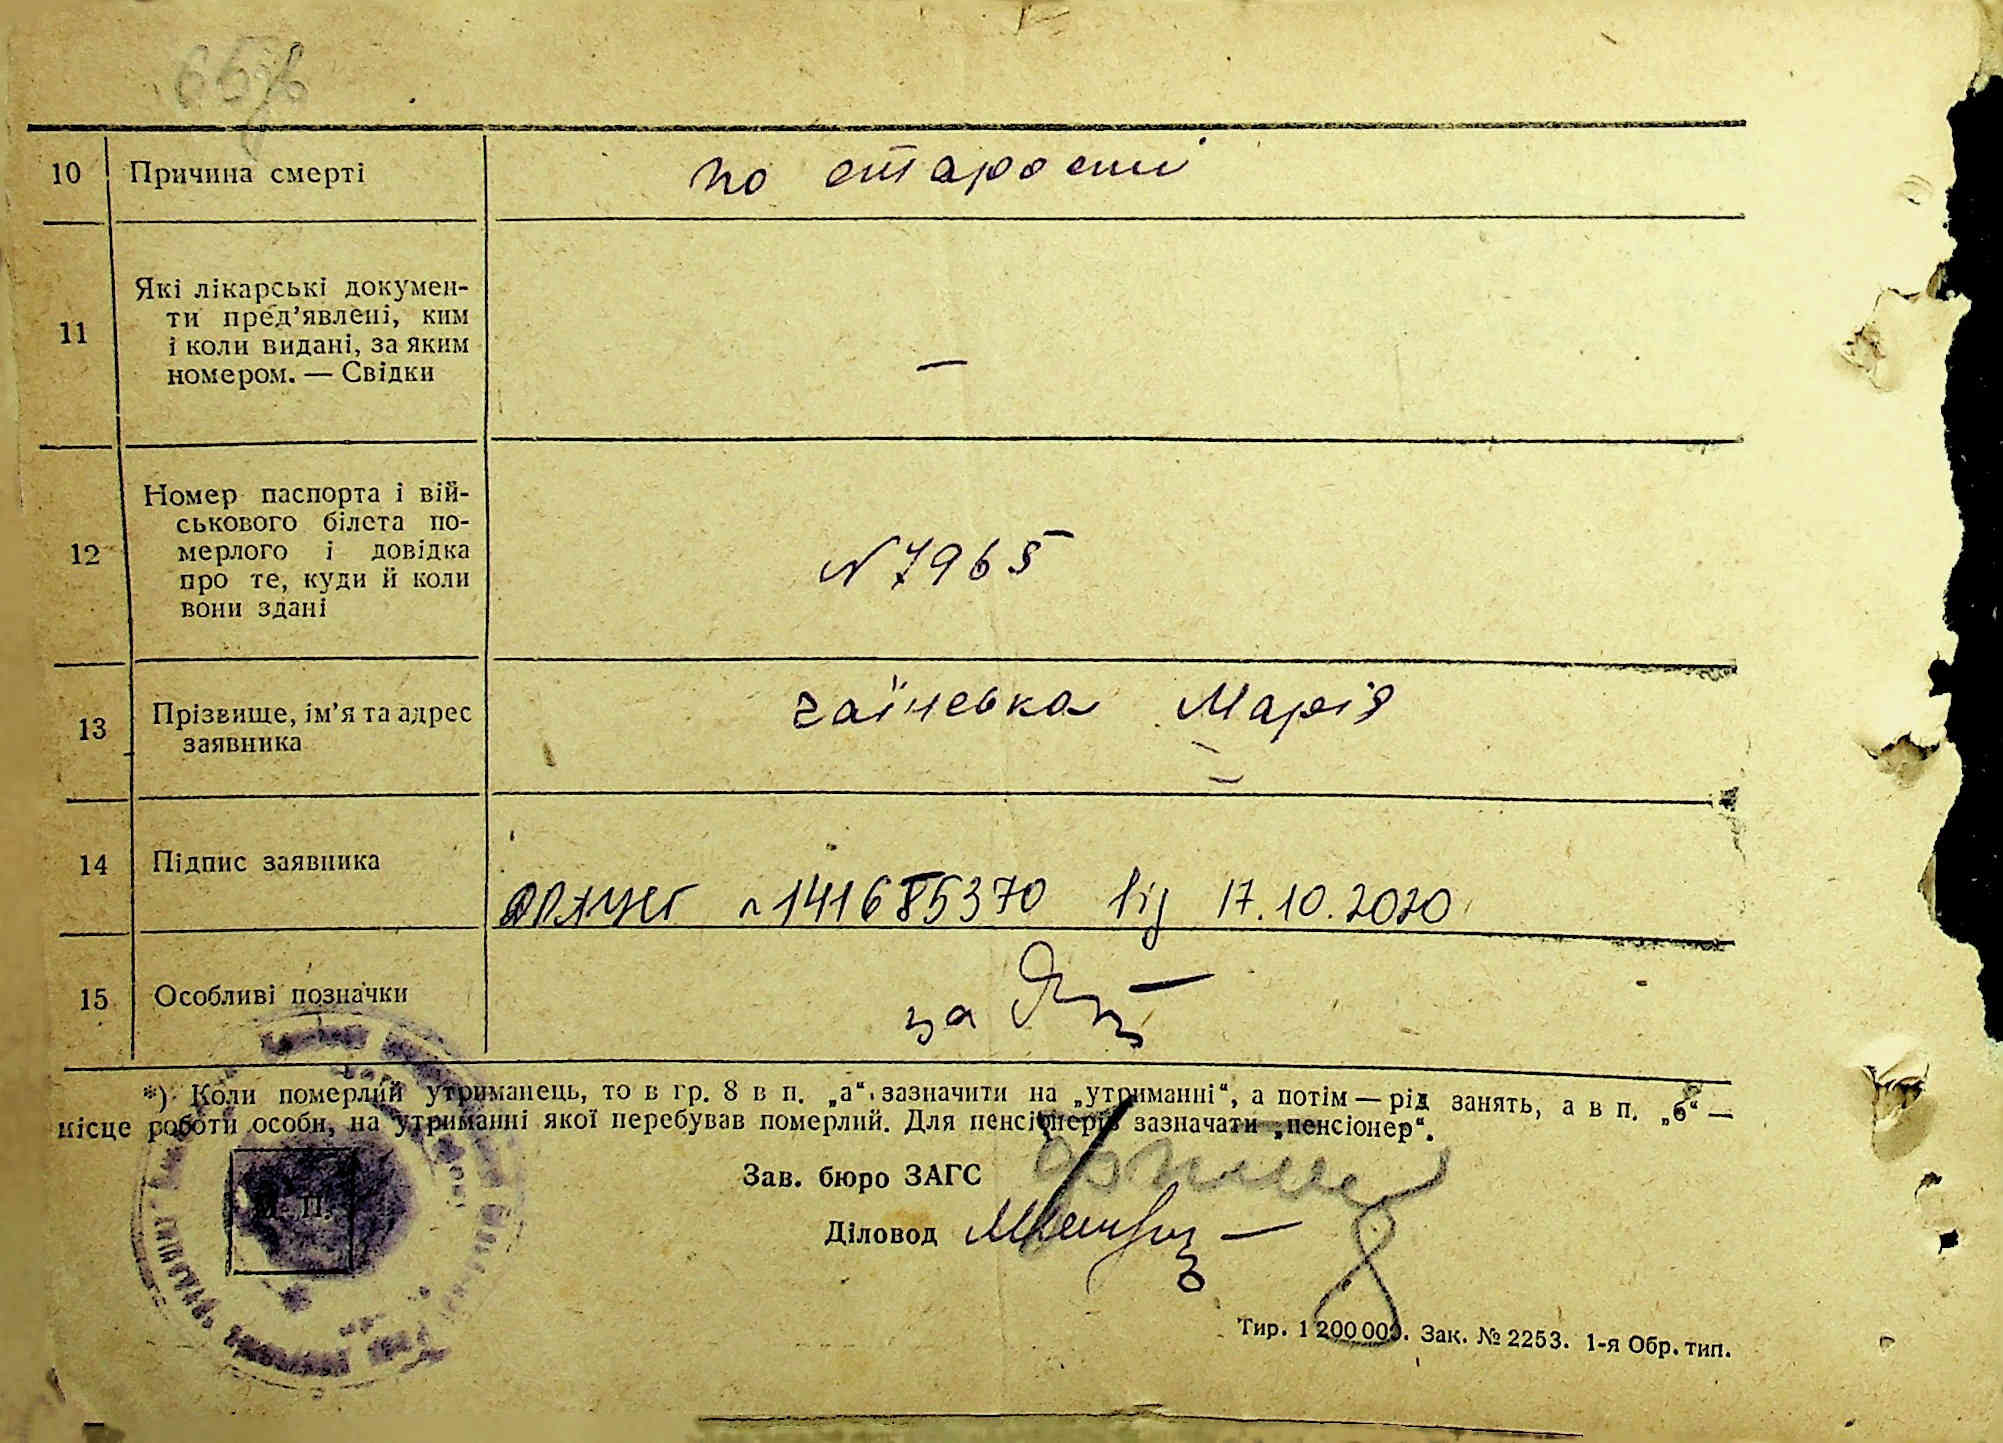 10 Причина смерті по старости
11 Які лікарські докумен-
ти пред’явлені, ким
і коли видані, за яким
номером. — Свідки —
12 Номер паспорта і вій-
ськового білета по-
мерлого і довідка
про те, куди й коли
вони здані
N 7965
13 Прізвище, ім’я та адрес
заявника
Марія
14 Підпис заявника
N 141685370 від 17.10.2020
15 Особливі позначки
за
*) Коли померлий утриманець, то в гр. 8 в п. „а“ зазначити на „утриманні“, а потім — рід занять, а в п. „б“ —
місце роботи особи, на утриманні якої перебував померлий. Для пенсіонерів зазначати „пенсіонер“.
Зав. бюро ЗАГС
М. П.
Діловод
Тир. 1 200 000. Зак. № 2253. 1-я Обр. тип.